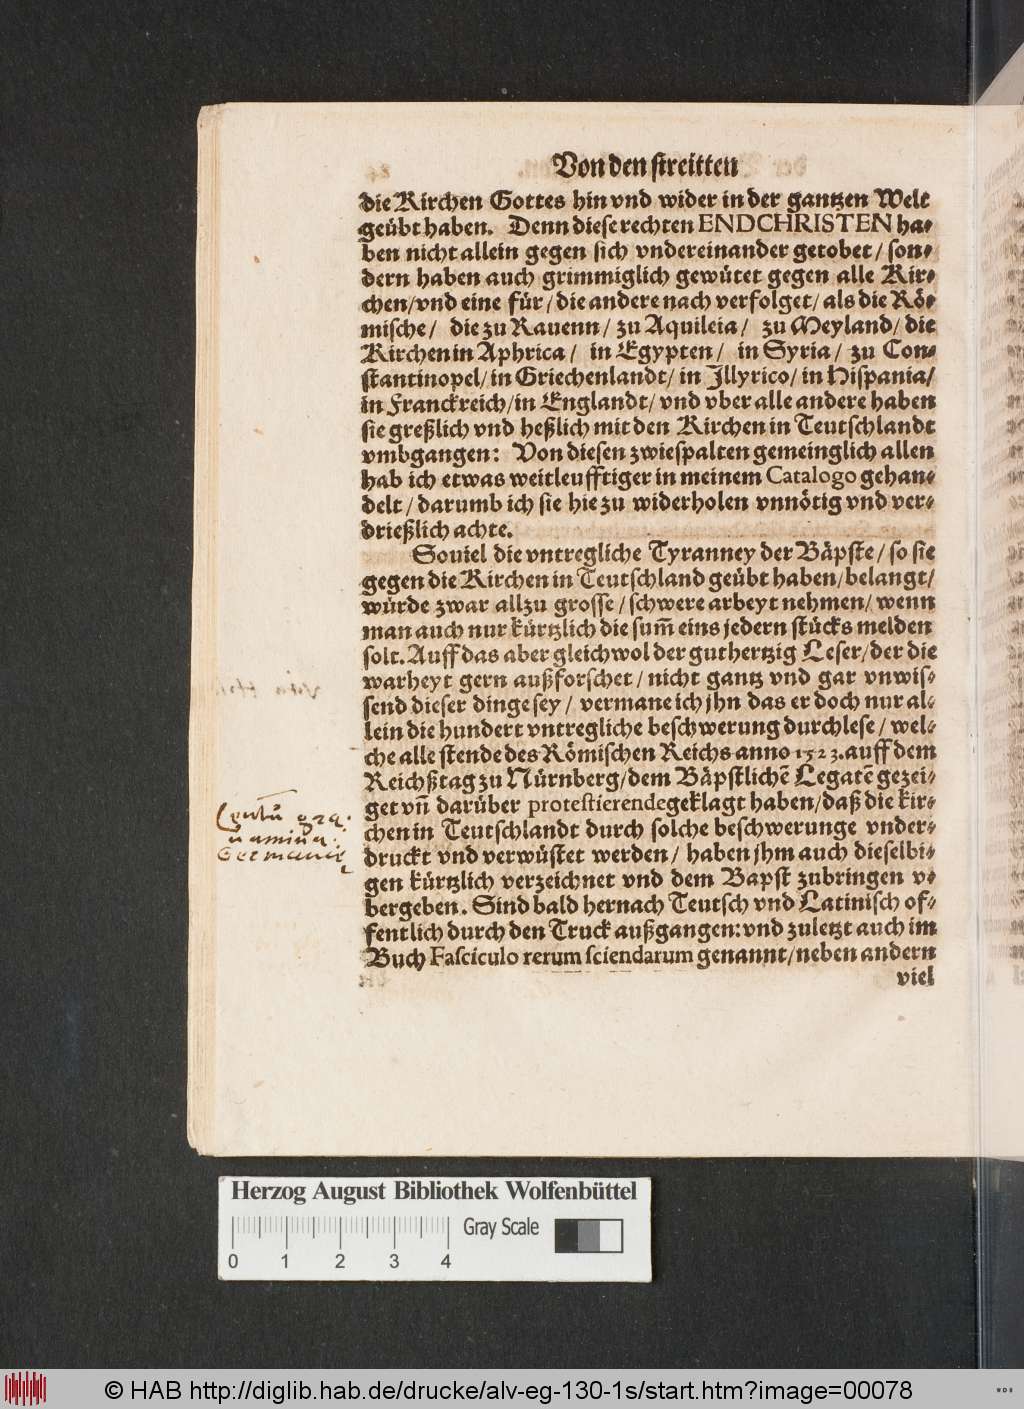 Von den streitten
die Kirchen Gottes hin vnd wider in der gantzen Welt
geübt haben. Denn diese rechten ENDCHRISTEN ha⸗
ben nicht allein gegen sich vndereinander getobet / son⸗
dern haben auch grimmiglich gewütet gegen alle Kir⸗
chen/vnd eine für / die andere nach verfolget/ als die Rö⸗
mische / die zu Rauenn / zu Aquileia / zu Meyland/ die
Kirchen in Aphrica / in Egypten / in Syria / zu Con⸗
stantinopel/ in Griechenlandt/ in Jllyrico/ in Hispania/
in Franckreich/in Englandt/ vnd vber alle andere haben
sie greßlich vnd heßlich mit den Kirchen in Teutschlandt
vmbgangen: Von diesen zwiespalten gemeinglich allen
hab ich etwas weitleufftiger in meinem Catalogo gehan⸗
delt / darumb ich sie hie zu widerholen vnnötig vnd ver⸗
drießlich achte.
Souiel die vntregliche Tyranney der Bäpste / so sie
gegen die Kirchen in Teutschland geübt haben/ belangt/
würde zwar allzu grosse / schwere arbeyt nehmen/ wenn
man auch nur kürtzlich die sum̃ eins jedern stücks melden
solt. Auff das aber gleichwol der guthertzig Leser/der die
warheyt gern außforschet / nicht gantz vnd gar vnwis⸗
send dieser dinge sey / vermane ich jhn das er doch nur al⸗
lein die hundert vntregliche beschwerung durchlese / wel⸗
che alle stende des Römischen Reichs anno 1523. auff dem
Reichßtag zu Nürnberg/dem Bäpstlichẽ Legatẽ gezei⸗
get vñ darüber protestierende geklagt haben/daß die kir⸗
chen in Teutschlandt durch solche beschwerunge vnder⸗
druckt vnd verwüstet werden / haben jhm auch dieselbi⸗
gen kürtzlich verzeichnet vnd dem Bapst zubringen v⸗
bergeben. Sind bald hernach Teutsch vnd Latinisch of⸗
fentlich durch den Truck außgangen: vnd zuletzt auch im
Buch Fasciculo rerum sciendarum genannt/ neben andern
viel
Centũ gra⸗
uamina
Germanie
Herzog August Bibliothek Wolfenbüttel
Gray Scale
0 1 2 3 4
© HAB http://diglib.hab.de/drucke/alv-eg-130-1s/start.htm?image=00078